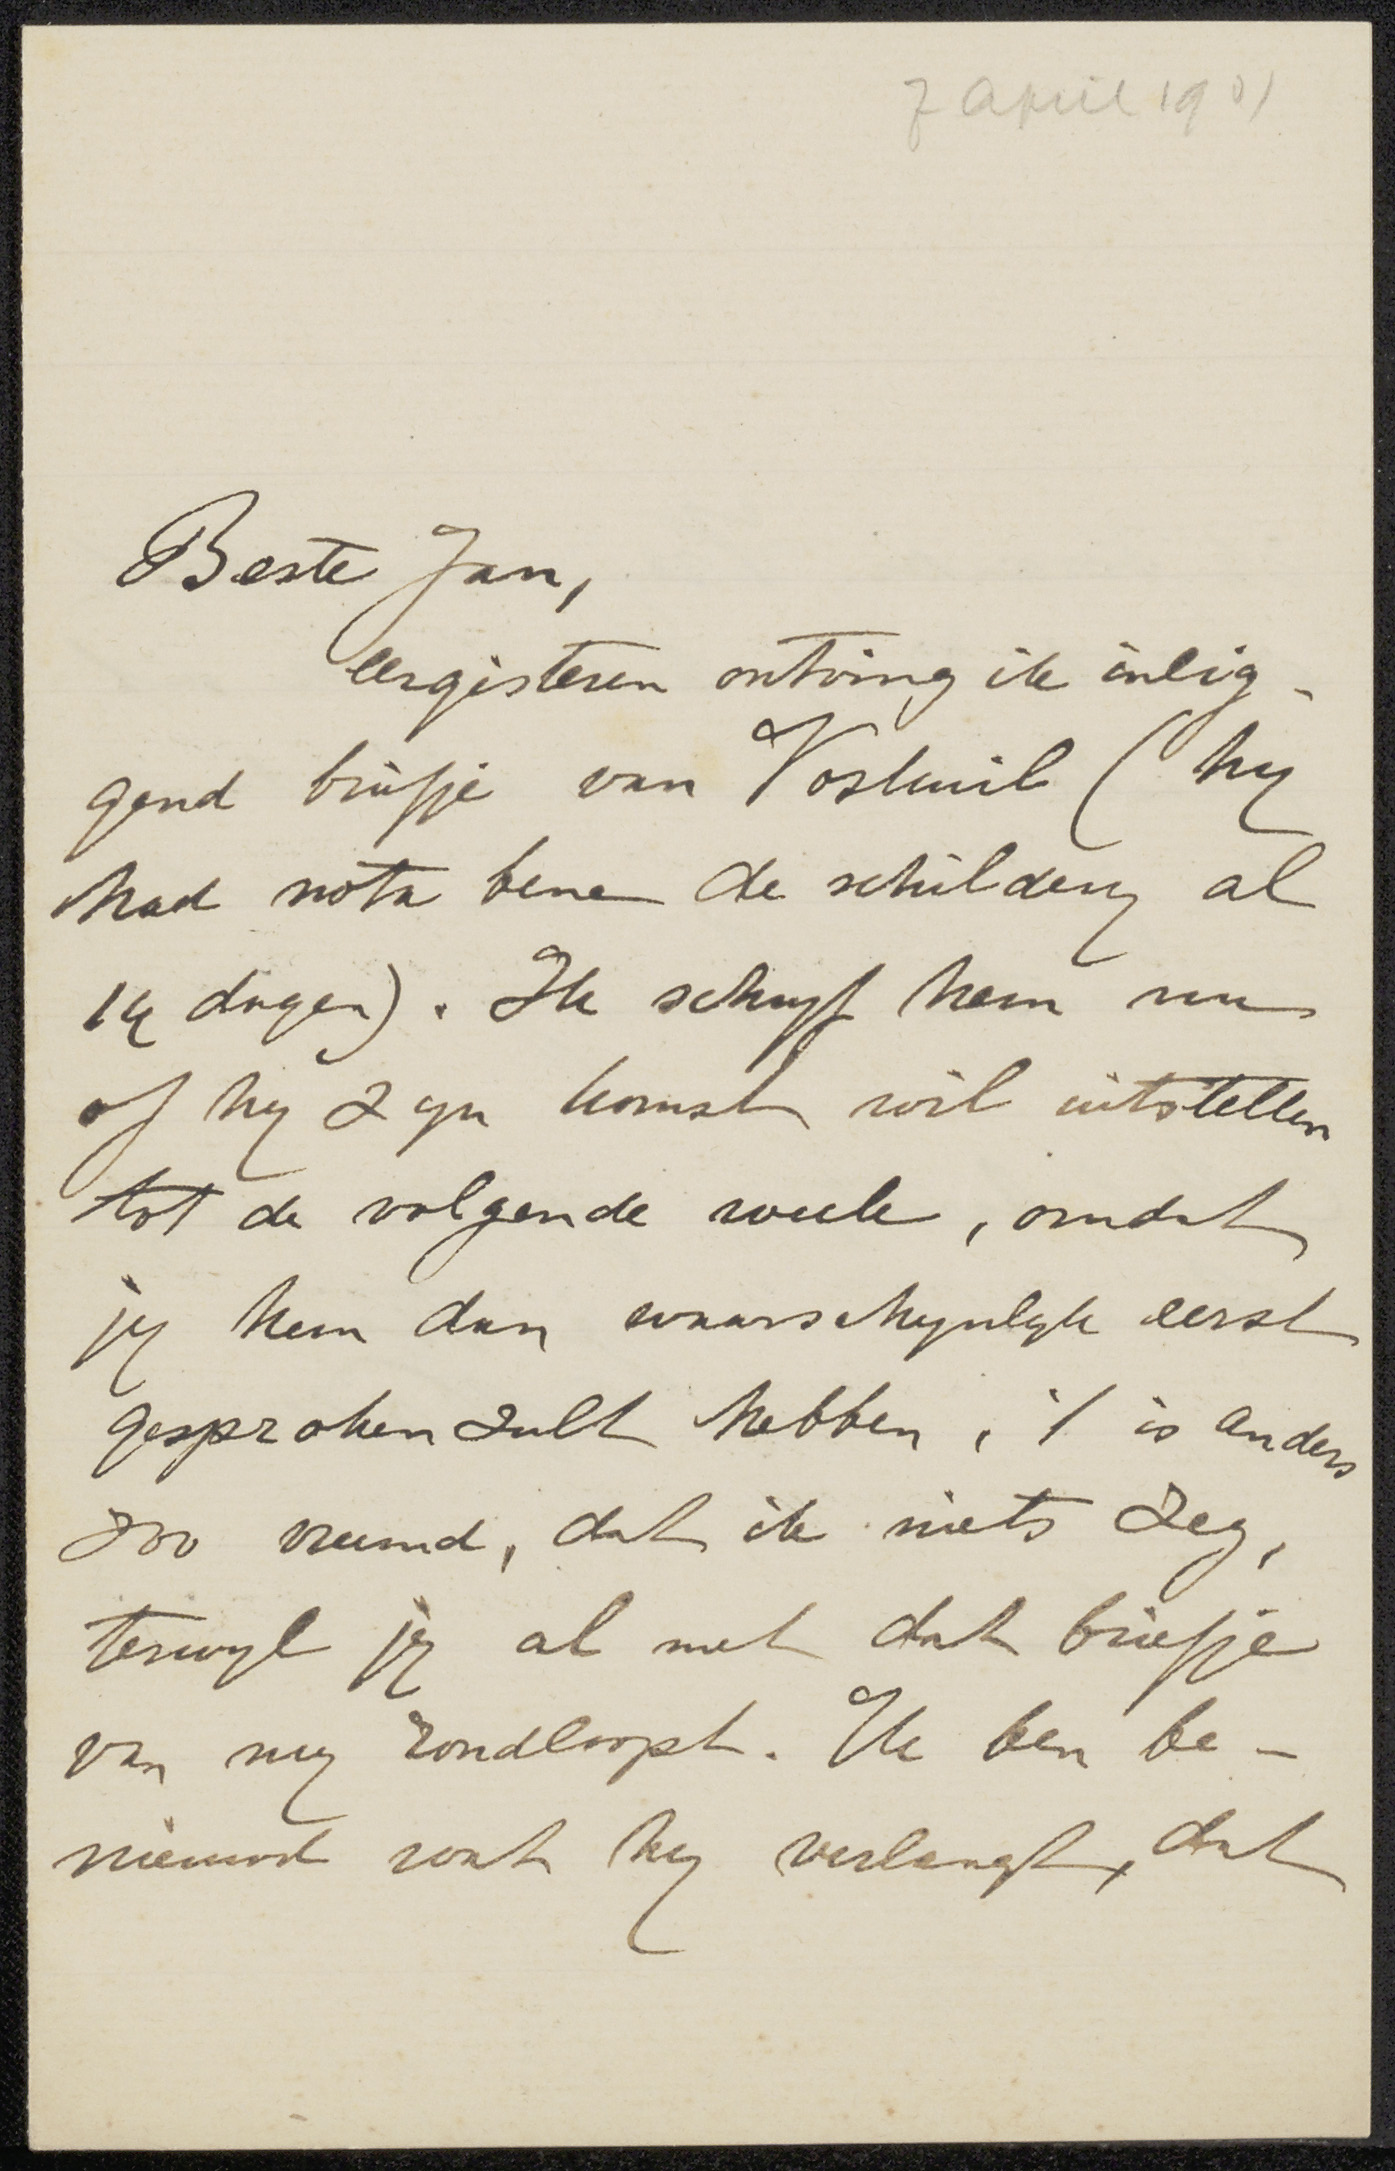 7 April 1901
Beste Jan,
eergisteren ontving ik inlig-
gend briefje van Voskuil (hy
had nota bene de schildery al
14 dagen). Ik schryf hem nu
of hy zyn komst wil uitstellen
tot de volgende week, omdat
jy hem dan waarschynlyk eerst
gesproken zult hebben, 't is anders
zoo vreemd, dat ik niets zeg,
terwyl jy al met dat briefje
van my rondloopt. Ik ben be-
nieuwd wat hy verlangt, dat